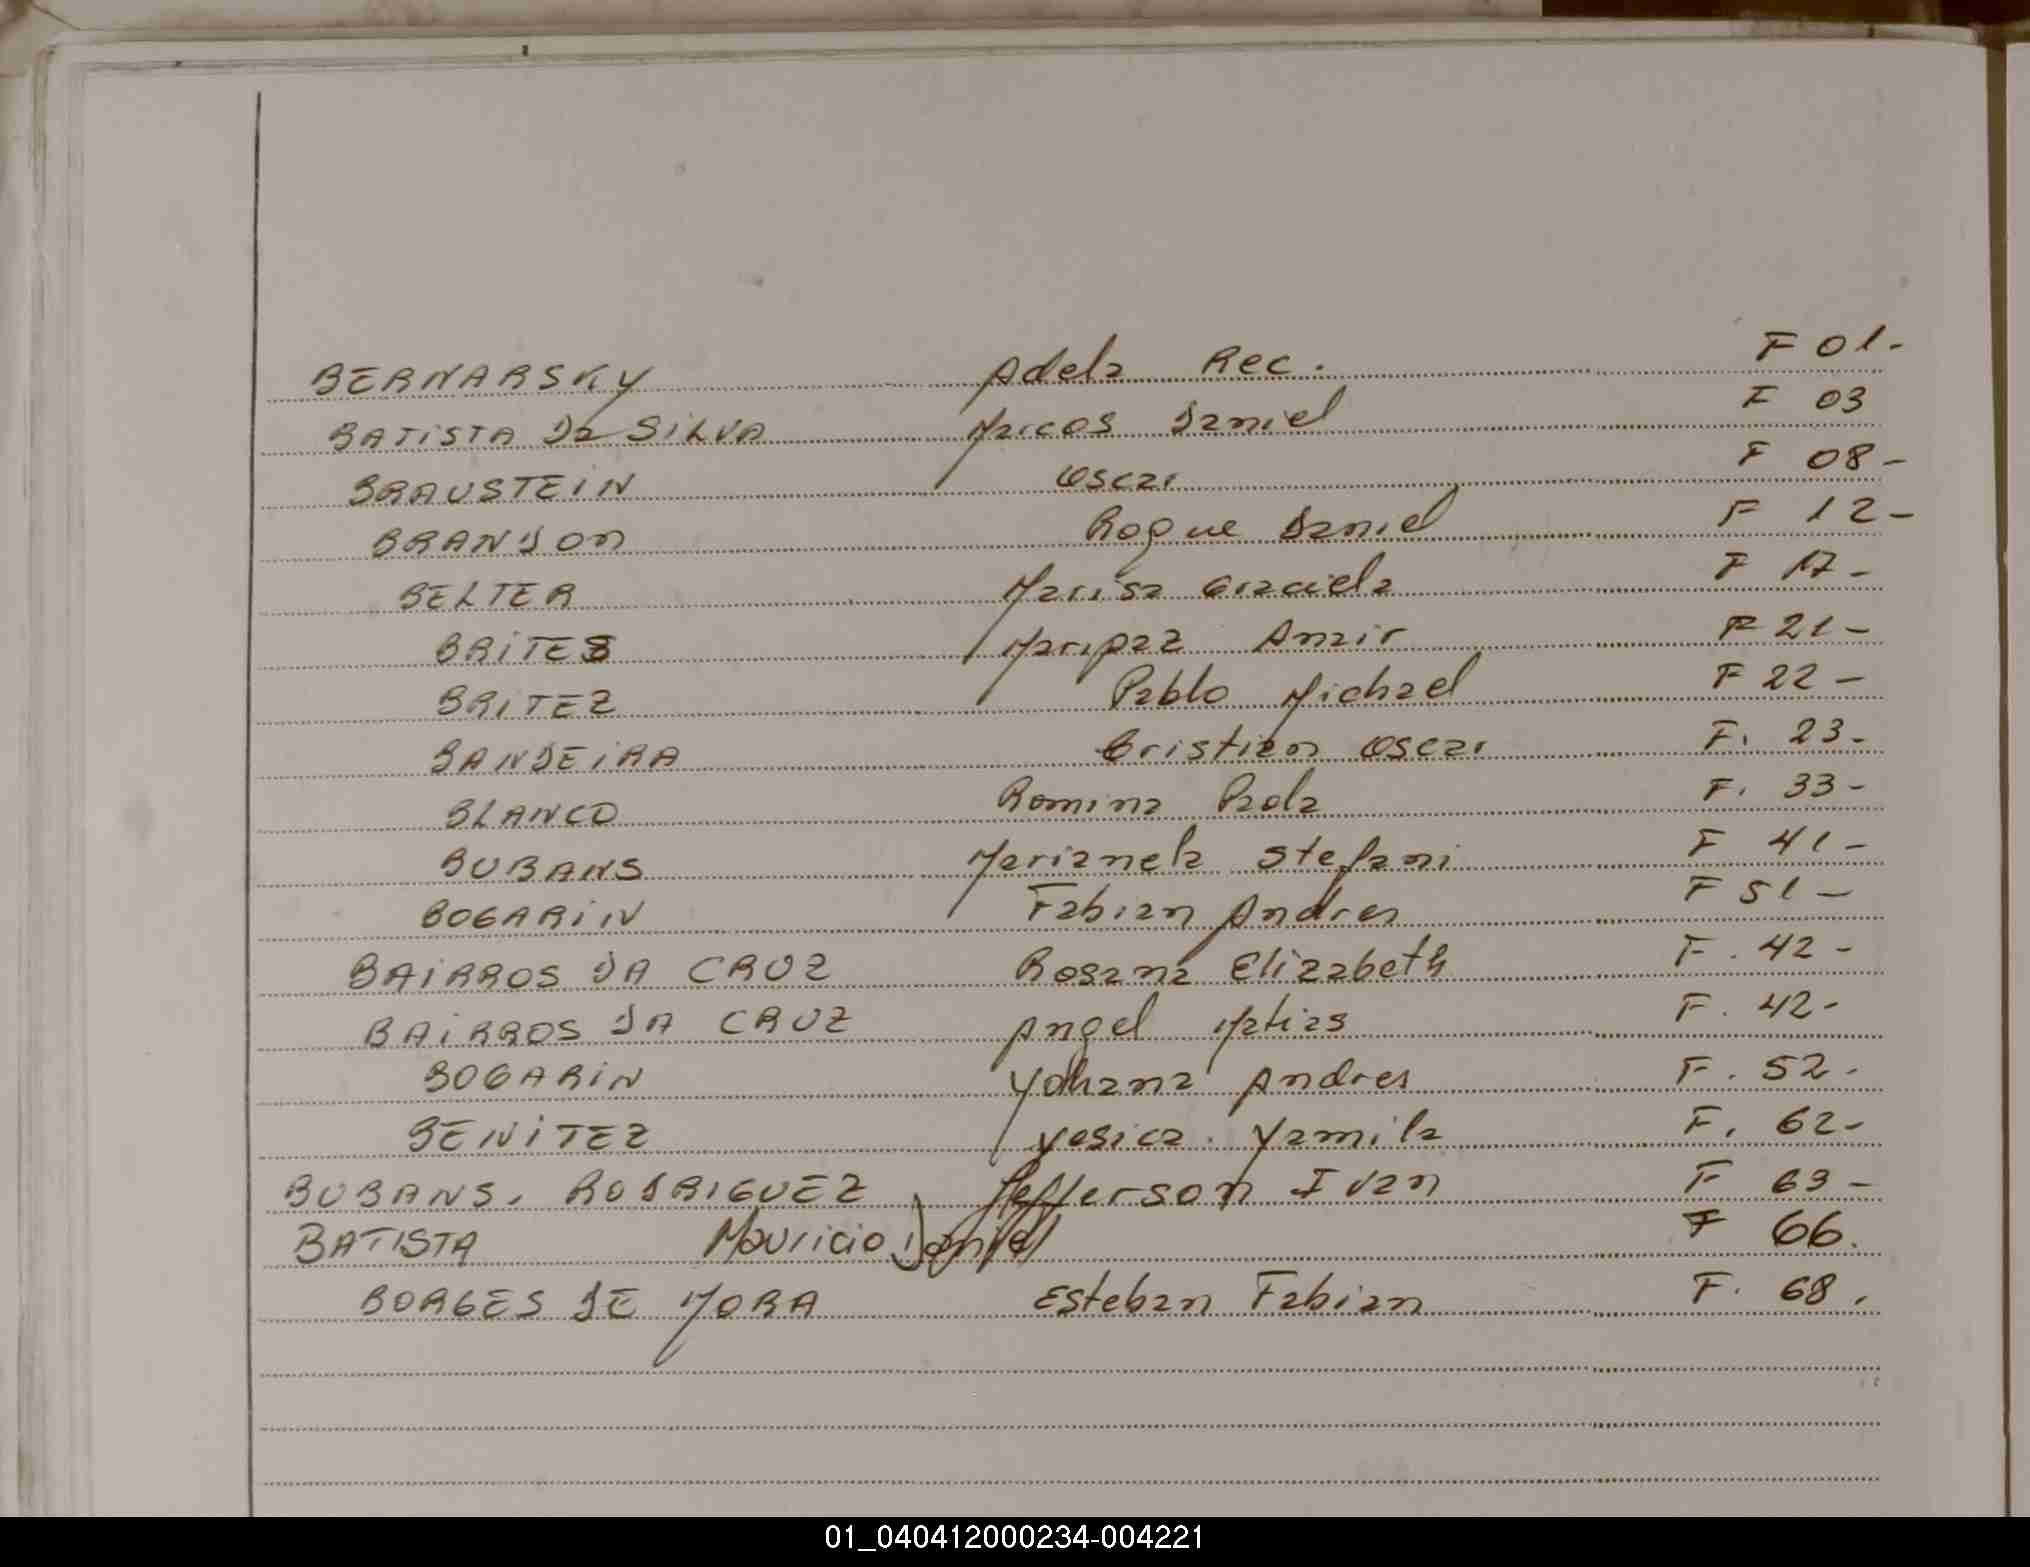 BERNARSKY Adela Rec. F 01-
BATISTA Da SILVA Marcos Daniel F 03
BRAUSTEIN Oscar F 08-
BRANDON Roque Daniel F 12-
BELTER Marisa Graciela F 17-
BRITES Maripaz Anair F 21-
BRITEZ Pablo Michael F 22-
BANDEIRA Cristian Oscar F. 23-
BLANCO Romina Paola F. 33-
BUBANS Marianela Stefani F 41-
BOGARIN Fabian Andres F 51-
BAIRROS DA CRUZ Rosana Elizabeth F. 42-
BAIRROS DA CRUZ Angel Matias F. 42-
BOGARIN Yohana Andres F. 52-
BENITEZ Yesica. Yamila F. 62-
BUBANS. RODRIGUEZ Jefferson Ivan F 63-
BATISTA Mauricio Daniel F 66.
BORGES DE MORA Esteban Fabian F. 68.
01_040412000234-004221